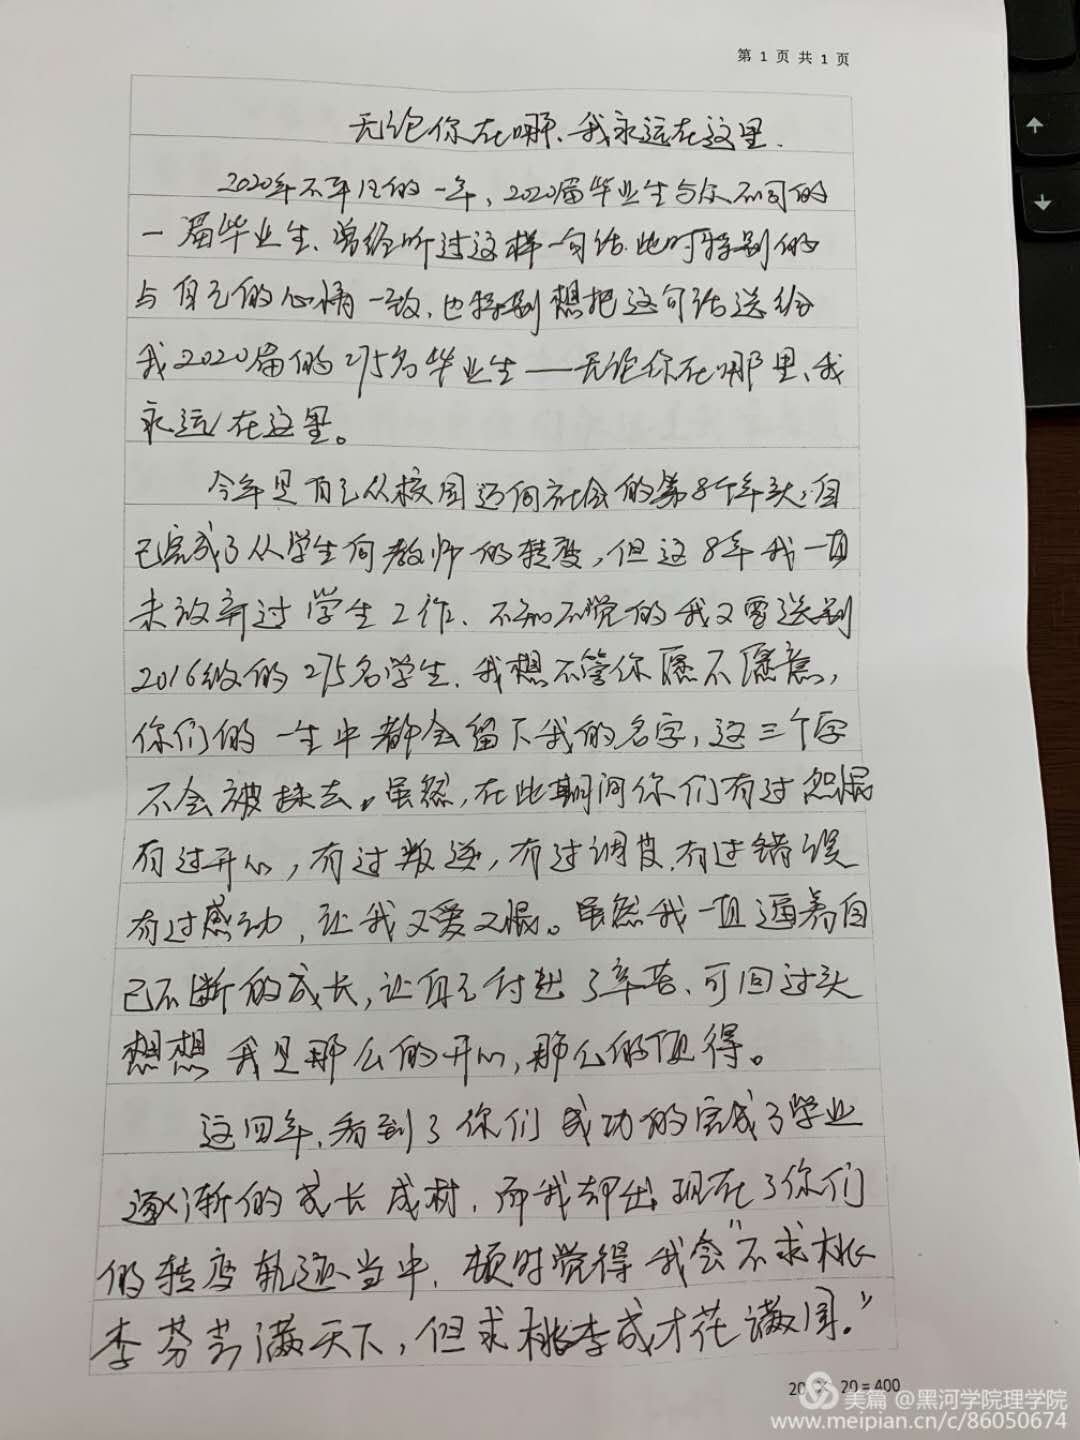 第 1 页 共 1 页
无论你在哪、我永远在这里.
2020年不平凡的一年、2020届毕业生与众不同的
一届毕业生、曾经听过这样一句话.此时特别的
与自己的心情一致、也特别想把这句话送给
我2020届的275名毕业生——无论你在哪里、我
永远在这里。
今年是自己从校园迈向社会的第8个年头,自
己完成了从学生向教师的转变,但这8年我一直
未放弃过学生工作、不知不觉的我又要送别
2016级的275名学生.我想不管你愿不愿意,
你们的一生中都会留下我的名字,这三个字
不会被抹去。虽然,在此期间你们有过怨恨
有过开心,有过叛逆,有过调皮.有过错误
有过感动,让我又爱又恨。虽然我一直逼着自
己不断的成长,让自己付出了辛苦、可回过头
想想 我是那么的开心,那么的值得。
这四年、看到了你们成功的完成了学业
逐渐的成长成材,而我却出现在了你们
的转变轨迹当中,顿时觉得我会“不求桃
李芬芳满天下,但求桃李成才花满园。”
20 × 20=400
美篇 @黑河学院理学院
www.meipian.cn/c/86050674